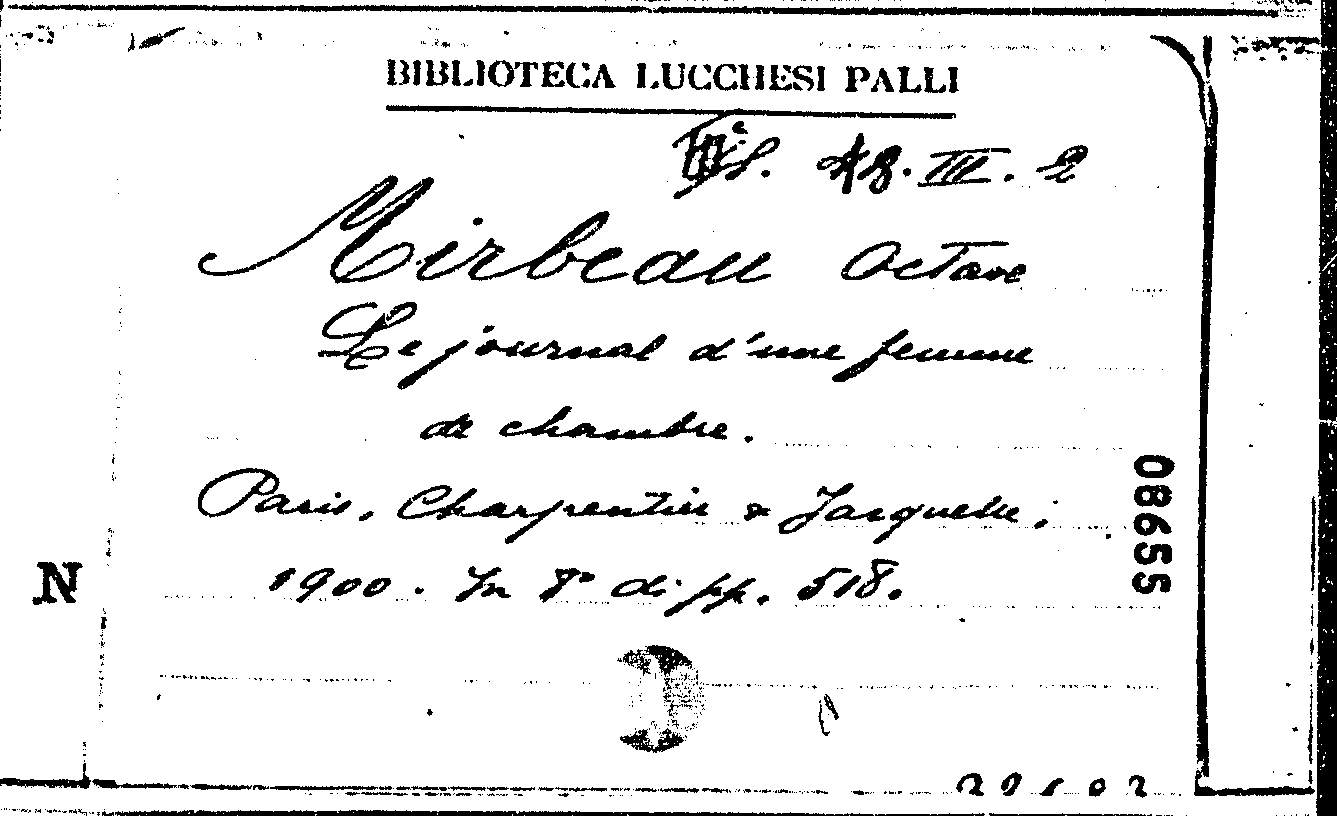 BIBLIOTECA LUCCHESI PALLI
18. III. 2
Mirbeau Octave
Le journal d'une femme
de chambre.
Paris, Charpentier & Fasquelle,
1900. In 8° di pp. 518.
08655
N